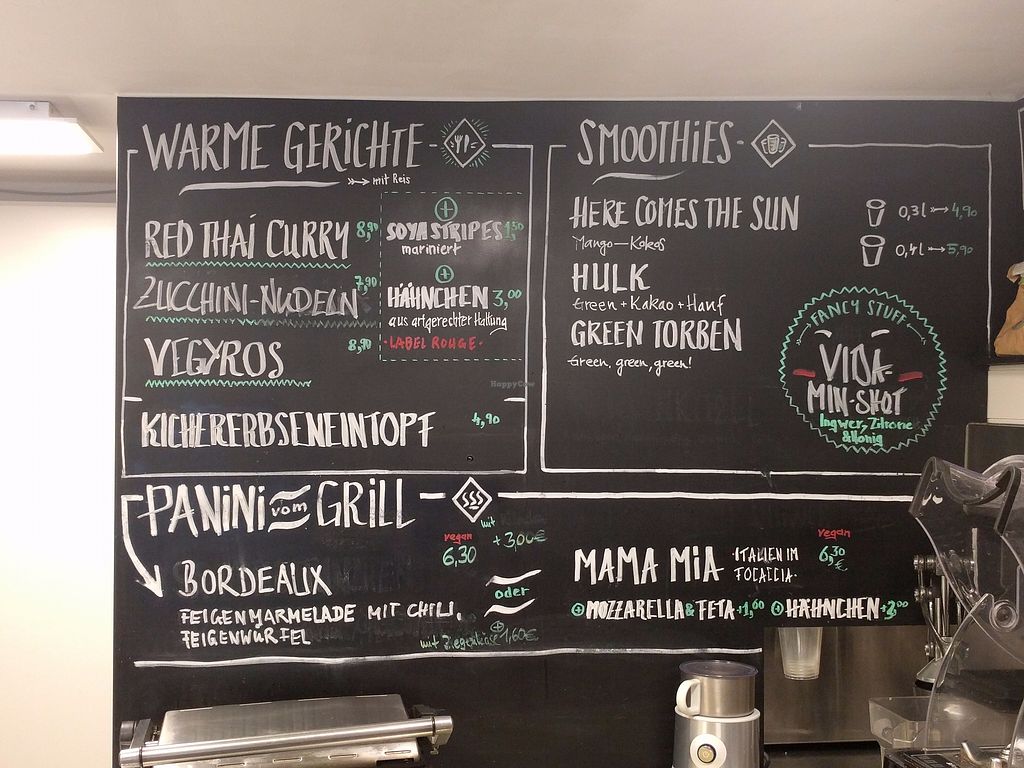 WARME GERICHTE
mit Reis
RED THAI CURRY 8,90
ZUCCHINI-NUDELN 7,90
VEGYROS 8,90
SOYASTRIPES 1,50
mariniert
HÄHNCHEN 3,00
aus artgerechter Haltung
·LABEL ROUGE·
KICHERERBSENEINTOPF 4,90
SMOOTHIES
HERE COMES THE SUN
Mango-Kokos
HULK
Green+Kakao+Hanf
GREEN TORBEN
Green, green, green!
0,3l 4,90
0,4l 5,90
FANCY STUFF
VIDA-
MIN-SHOT
Ingwer, Zitrone
& Honig
HappyCow
PANINI vom GRILL
BORDEAUX
vegan
6,30
mit
+3,00€
FEIGENMARMELADE MIT CHILI,
FEIGENWÜRFEL
oder
mit Ziegenkäse + 1,60€
MAMA MIA
·ITALIEN IM
FOCACCIA·
vegan
6,30
€
+ MOZZARELLA & FETA +1,60 + HÄHNCHEN +3,00